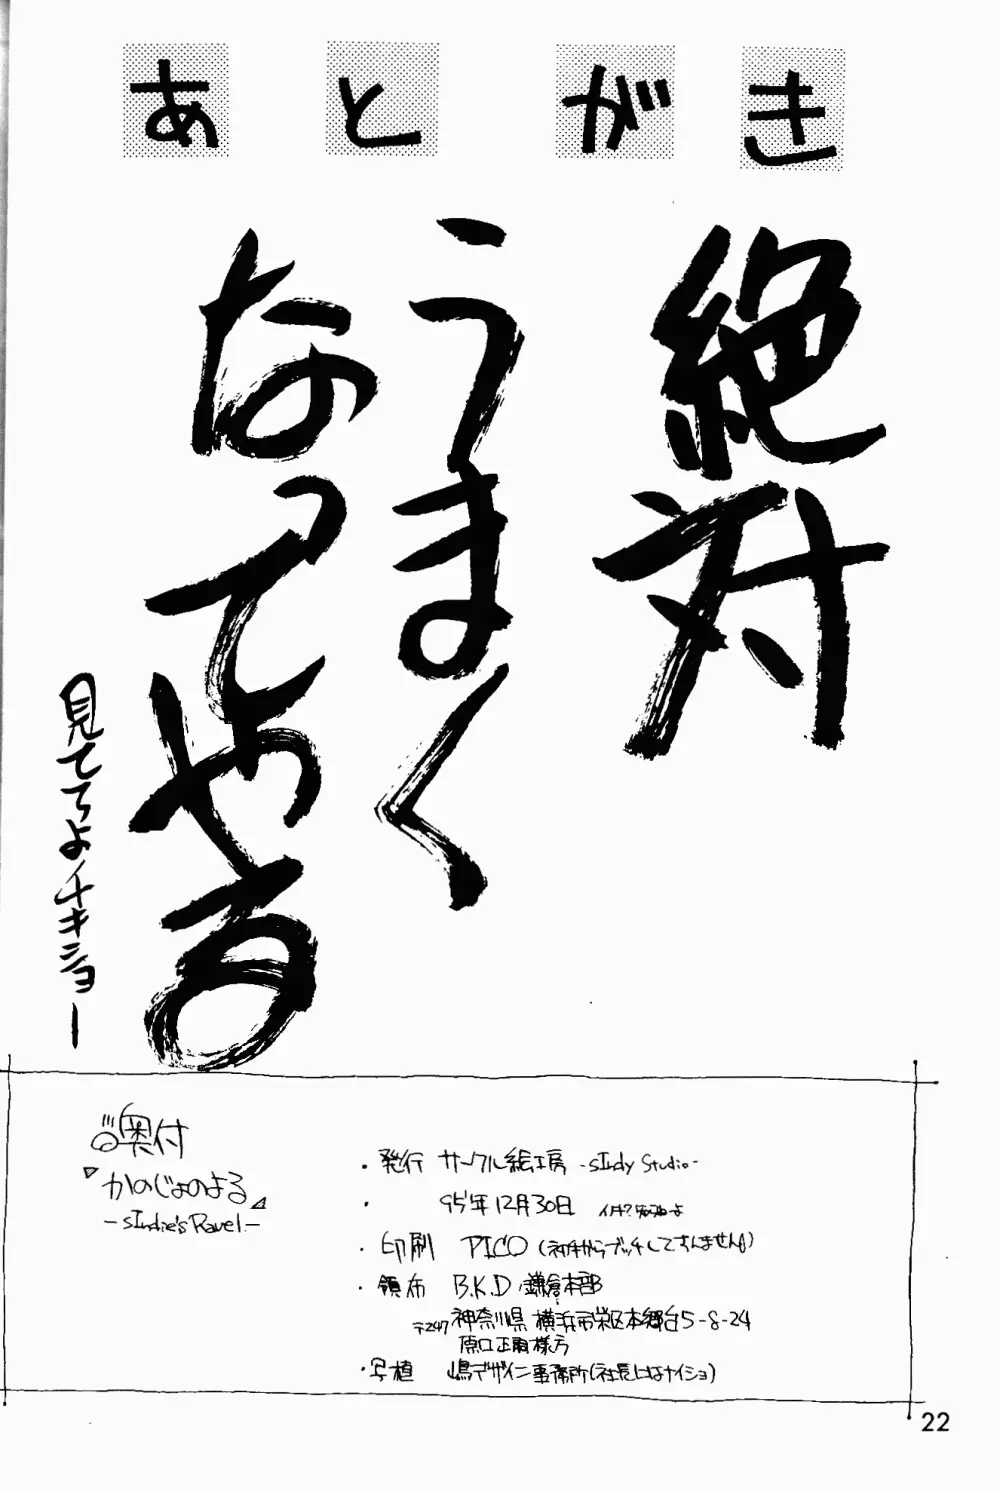 あとがき
絶対
うまく
なってやる
見てろよチキショー
奥付
かのじょのよる
-sIndie's Ravel-
・発行 サークル絵工房 -sIndy Studio-
・ 95年12月30日
・印刷 PICO (ネ中からブッチしてすんません)
・領布 B.K.D 鎌倉本部
〒247 神奈川県横浜市栄区本郷台5-8-24
原口正爾様方
・写植 嶋デザイン事務所(社長はナイショ)
22